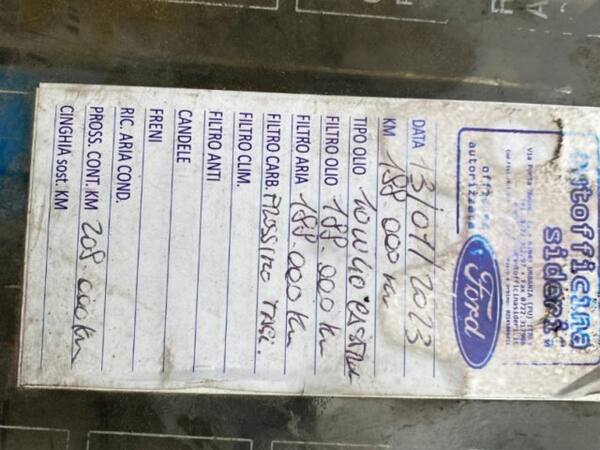 autofficina
sideri
officina
autorizzata
Ford
DATA 13/01/2023
KM 188.000 km
TIPO OLIO 10W40
FILTRO OLIO 188.000 km
FILTRO ARIA 188.000 km
FILTRO CARB. PROSSIMO TAGL.
FILTRO CLIM.
FILTRO ANTI
CANDELE
FRENI
RIC. ARIA COND.
PROSS. CONT. KM 208.000 km
CINGHIA sost. KM